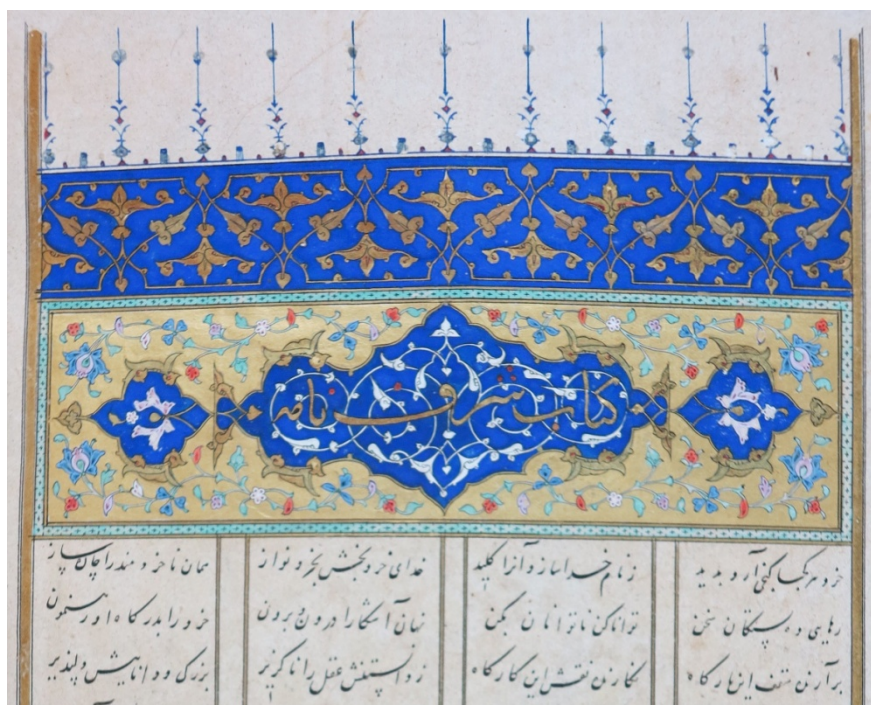 کتاب شرف نامه
خرد هر کجا گنجی آرد پدید ز نام خدا سازد آنرا کلید خدای خرد بخش بخرد نواز همان ناخردمند را چاره ساز
رهایی ده بستگان سخن توانا کن ناتوانان کن نهان آشکارا درون و برون خرد را بدرگاه او رهنمون
برآرنده سقف این بارگاه نگارنده نقش این کارگاه ز دانستنش عقل را ناگزیر بزرگی و داناییش دلپذیر